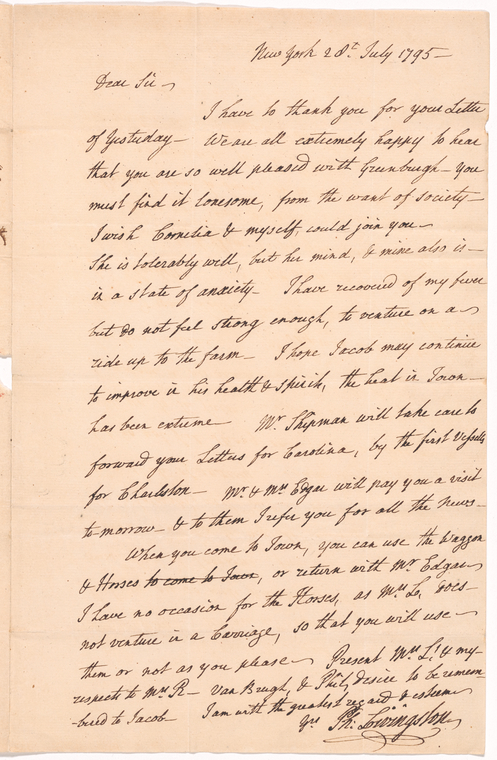 New York 28t. July 1795 —
Dear Sir —
I have to thank you for your Letter
of Yesterday — We are all extremely happy to hear
that you are so well pleased with Greenburgh — you
must find it lonesome, from the want of society —
I wish Cornelia & myself could join you —
She is tolerably well, but her mind, & mine also is —
in a state of anxiety — I have recovered of my fever
but do not feel strong enough, to venture on a —
ride up to the farm — I hope Jacob may continue
to improve in his health & spirits, the heat in Town —
has been extreme — Mr. Shipman will take care to
forward your Letters for Carolina, by the first Vessels
for Charlston — Mr. & Mrs Edgar will pay you a visit
to-morrow — & to them I refer you for all the News —
When you come to Town, you can use the Waggon
& Horses to come to Town, or return with Mr. Edgar —
I have no occasion for the Horses, as Mrs. L. does —
not venture in a Carriage, so that you will use —
them or not as you please — Present Mrs. L.s & my —
respects to Mrs. R — Van Brugh, & Phil, desire to be remem
-bered to Jacob — I am with the greatest regard & esteem
Yrs Ph: Livingston